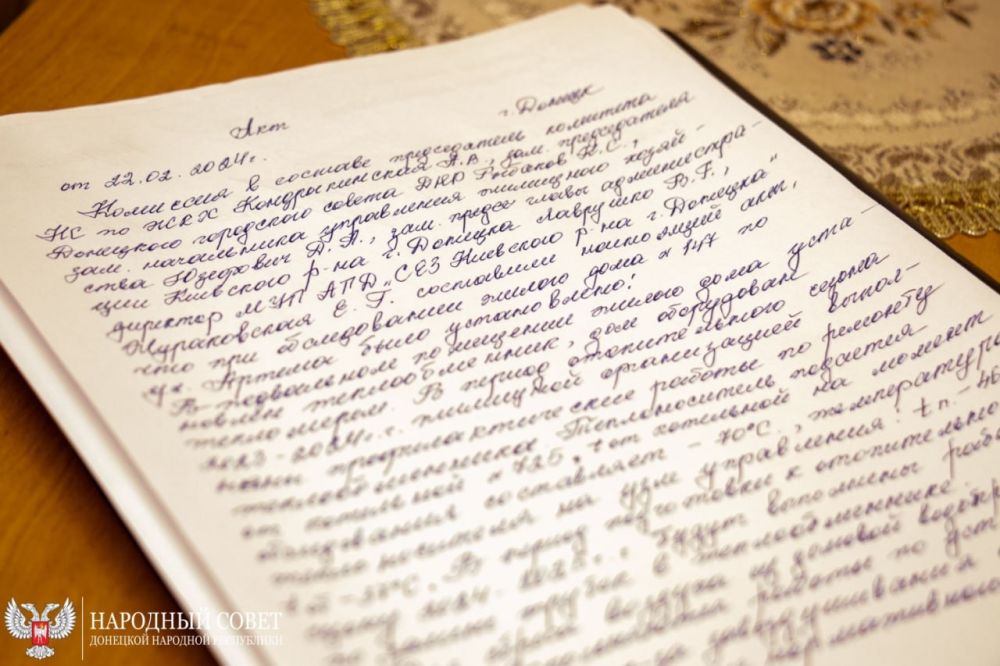 Акт
от 22.02.2024г. г. Донецк
Комиссия в составе председатель комитета
НС по ЖКХ Кондрыкинская А.В., зам. председателя
Донецкого городского совета ДНР Рыбаков К.С.,
зам. начальника управления жилищного хозяй-
ства Юзефович Д.А., зам. предс. главы администра-
ции Киевского р-на г. Донецка Лаврушко В.Г.,
директор МУП АПД „СЕЗ Киевского р-на г. Донецка"
Жураковская Е.Г. составили настоящий акт,
что при обследовании жилого дома № 147 по
ул. Артема было установлено:
В подвальном помещении жилого дома уста-
новлен теплообменник, дом оборудован
тепломером. В период отопительного сезона
2023-2024г.г. жилищной организацией выпол-
нены профилактические работы по ремонту
теплообменника. Теплоноситель подается
от котельной № 725, t от котельной на момент
обследования составляет – 70°С, температура
теплоносителя на узле управления: tп.- 46
В период подготовки к отопительно
будут выполнены рабо
трубок в теплообменнике.
работы по
НАРОДНЫЙ СОВЕТ
ДОНЕЦКОЙ НАРОДНОЙ РЕСПУБЛИКИ